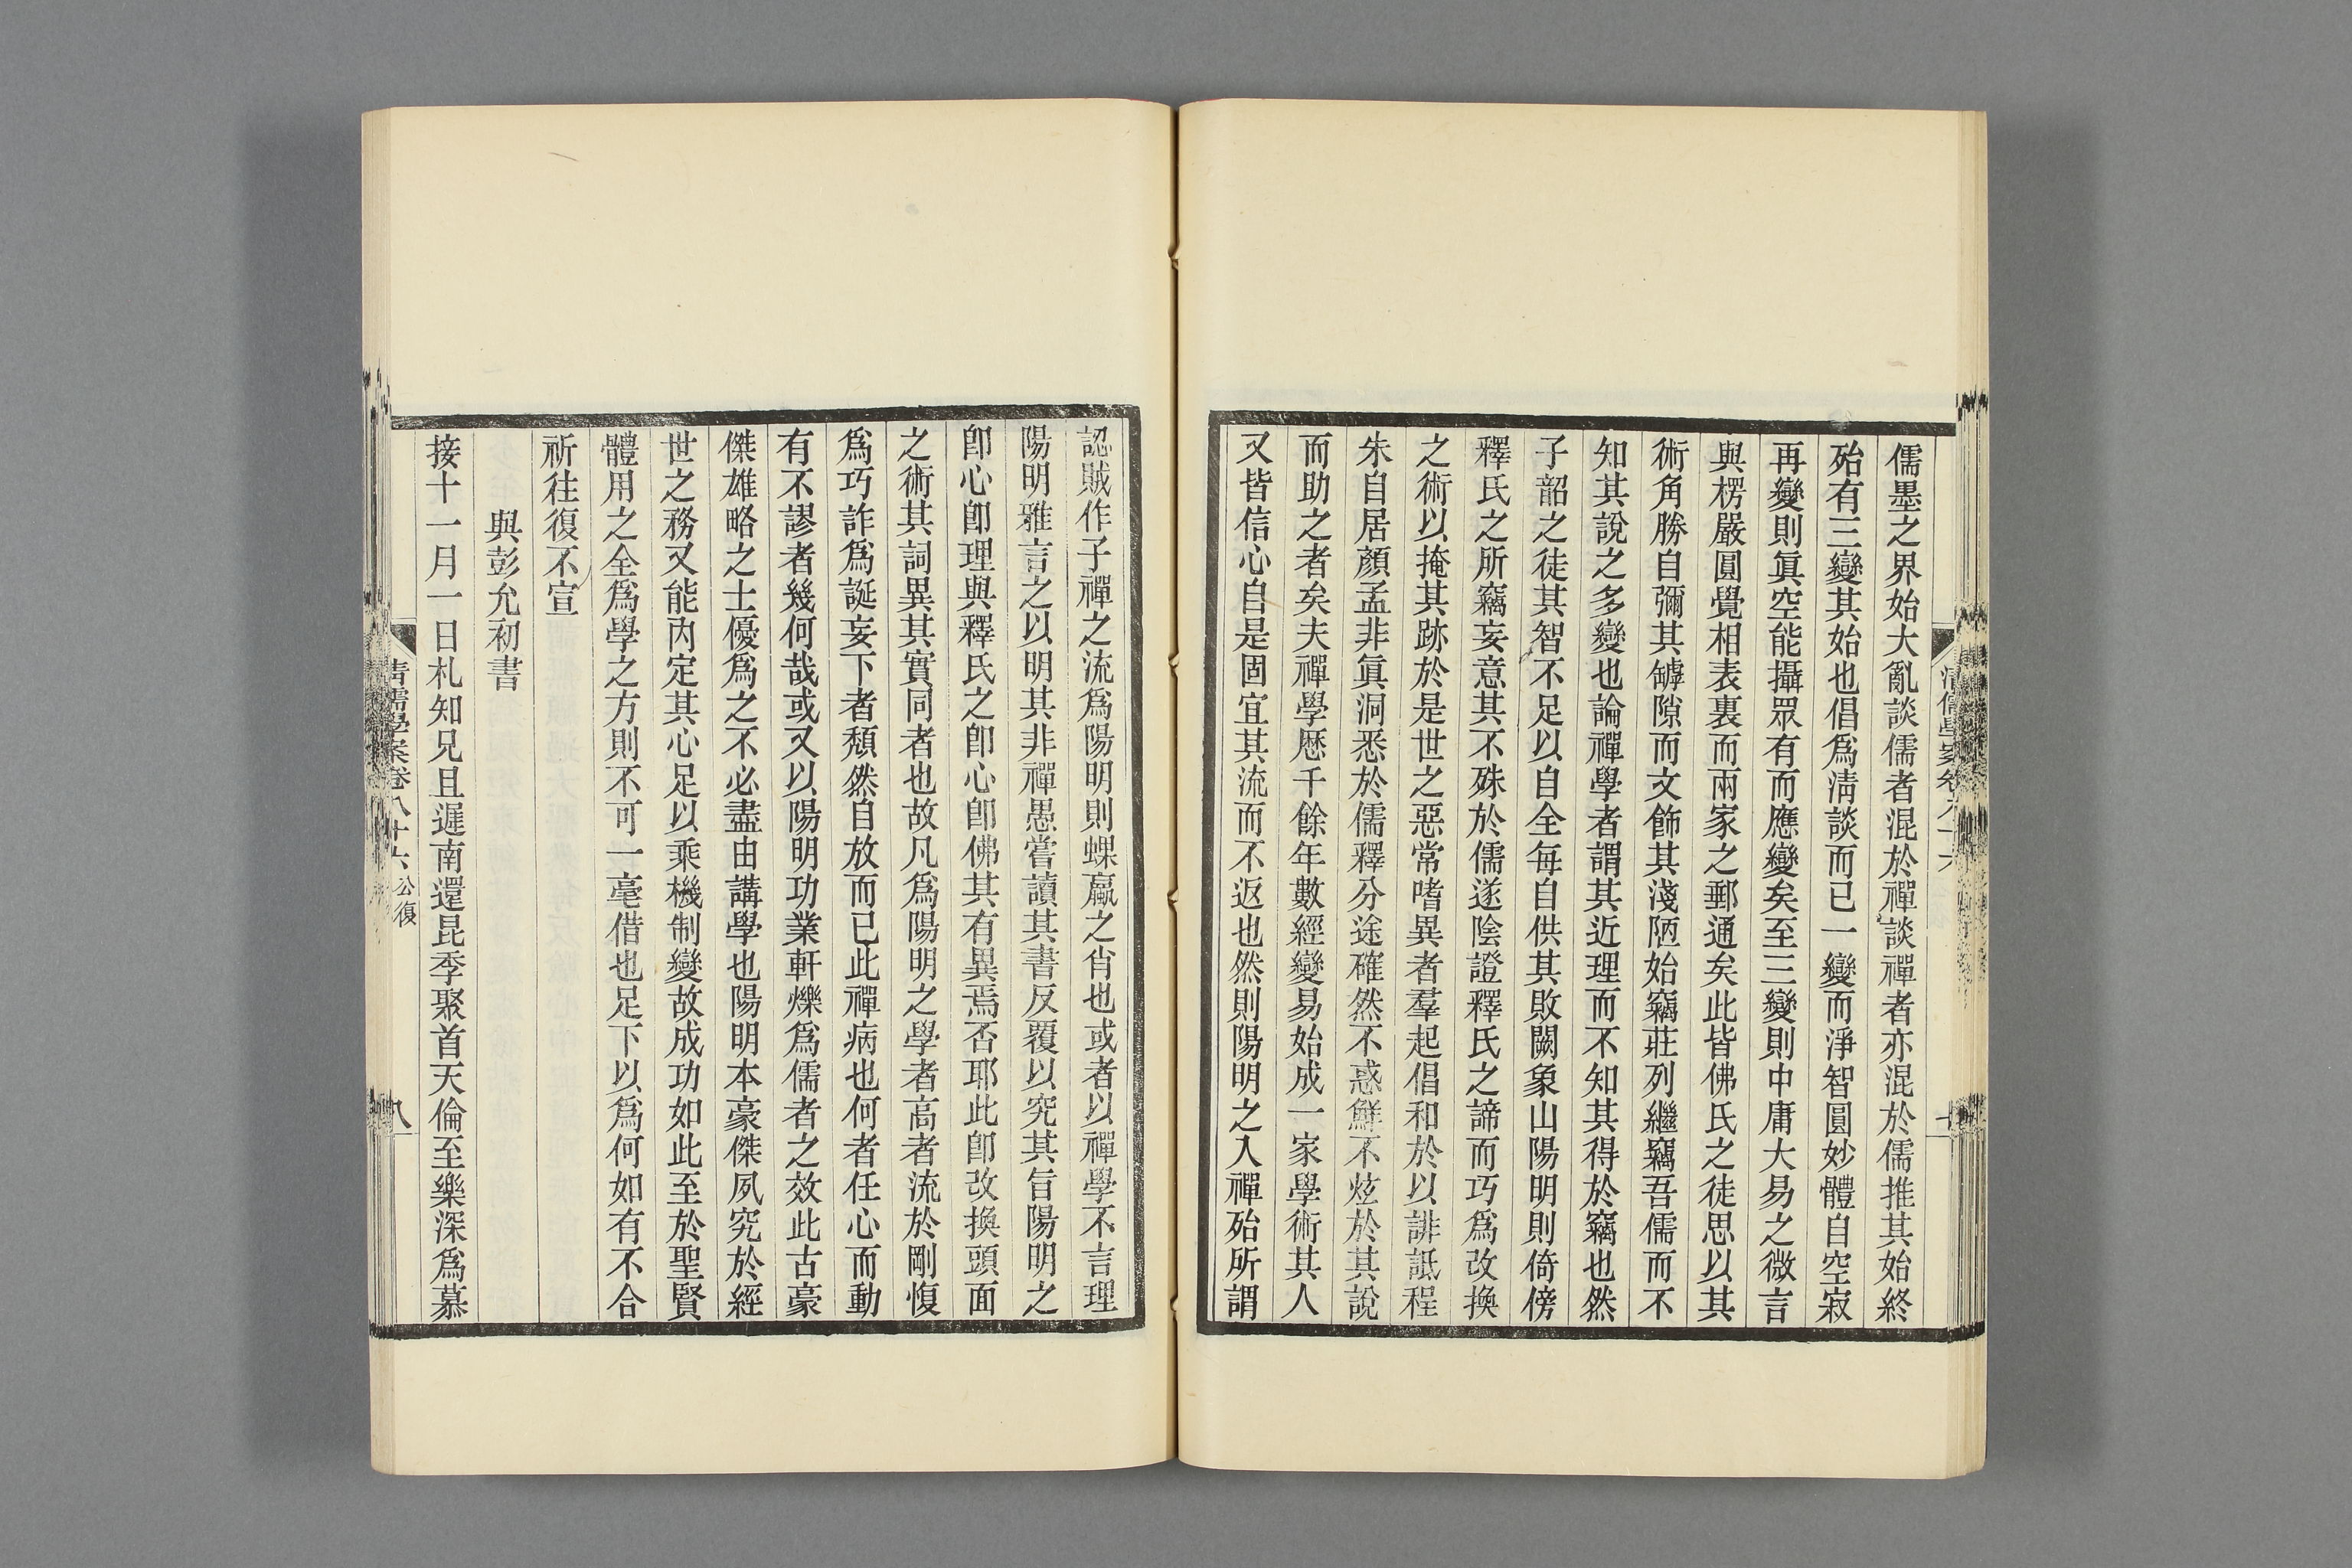 儒墨之界始大亂談儒者混於禪談禪者亦混於儒推其始終
殆有三變其始也倡爲淸談而已一變而淨智圓妙體自空寂
再變則眞空能攝眾有而應變矣至三變則中庸大易之微言
與楞嚴圓覺相表裏而兩家之郵通矣此皆佛氏之徒思以其
術角勝自彌其罅隙而文飾其淺陋始竊莊列繼竊吾儒而不
知其說之多變也論禪學者謂其近理而不知其得於竊也然
子韶之徒其智不足以自全每自供其敗闕象山陽明則倚傍
釋氏之所竊妄意其不殊於儒遂陰證釋氏之諦而巧爲改換
之術以掩其跡於是世之惡常嗜異者羣起倡和於以誹詆程
朱自居顏孟非眞洞悉於儒釋分途確然不惑鮮不炫於其說
而助之者矣夫禪學歷千餘年數經變易始成一家學術其人
又皆信心自是固宜其流而不返也然則陽明之入禪殆所謂
認賊作子禪之流爲陽明則蜾蠃之肖也或者以禪學不言理
陽明雅言之以明其非禪愚嘗讀其書反覆以究其旨陽明之
卽心卽理與釋氏之卽心卽佛其有異焉否耶此卽改換頭面
之術其詞異其實同者也故凡爲陽明之學者高者流於剛愎
爲巧詐爲誕妄下者頹然自放而已此禪病也何者任心而動
有不謬者幾何哉或又以陽明功業軒爍爲儒者之效此古豪
傑雄略之士優爲之不必盡由講學也陽明本豪傑夙究於經
世之務又能內定其心足以乘機制變故成功如此至於聖賢
體用之全爲學之方則不可一毫借也足下以爲何如有不合
祈往復不宣
與彭允初書
接十一月一日札知兄且遲南還昆季聚首天倫至樂深爲慕
清儒學案卷八十六 公復
八